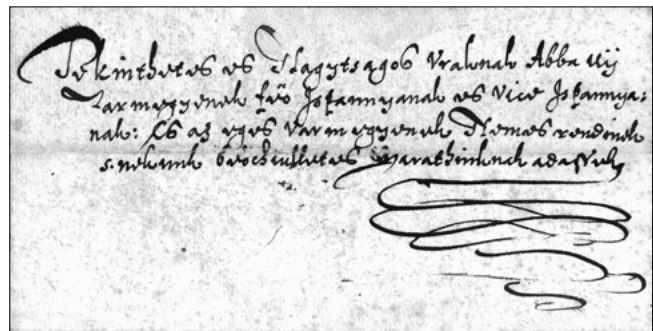 Tekinthetes es Nagytsagos Uraknak Abba uÿ
Varmegyenek feö Ispannyanak es Vice Ispannya:
nak: Es az eges Varmegyenek Nemes rendinek
nekunk böchiulletes Barathinknak adassek